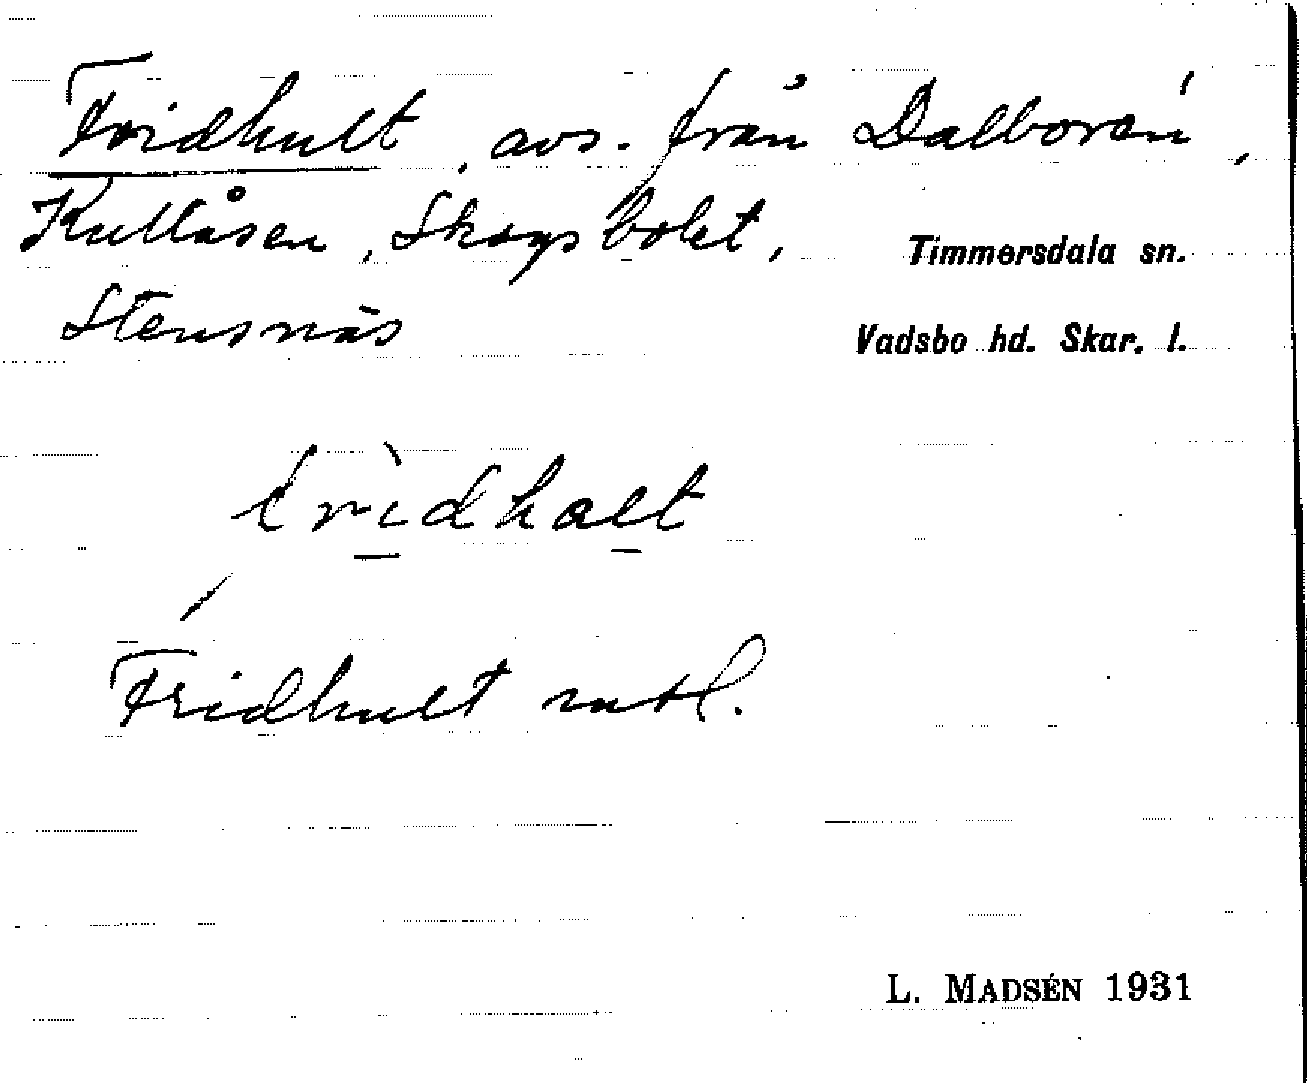 Fridhult, avs. från Dalborén,
Kullåsen, Skogsbolet,
Timmersdala sn.
Stensnäs
Vadsbo hd. Skar. l.
frìdhalt
Fridhult mtl.
L. MADSÉN 1931